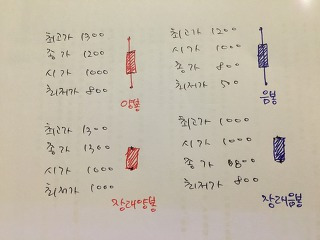 최고가 1300
종가 1200
시가 1000
최저가 800
양봉
최고가 1200
시가 1000
종가 800
최저가 500
음봉
최고가 1300
종가 1300
시가 1000
최저가 1000
장래양봉
최고가 1000
시가 1000
종가 800
최저가 800
장래음봉